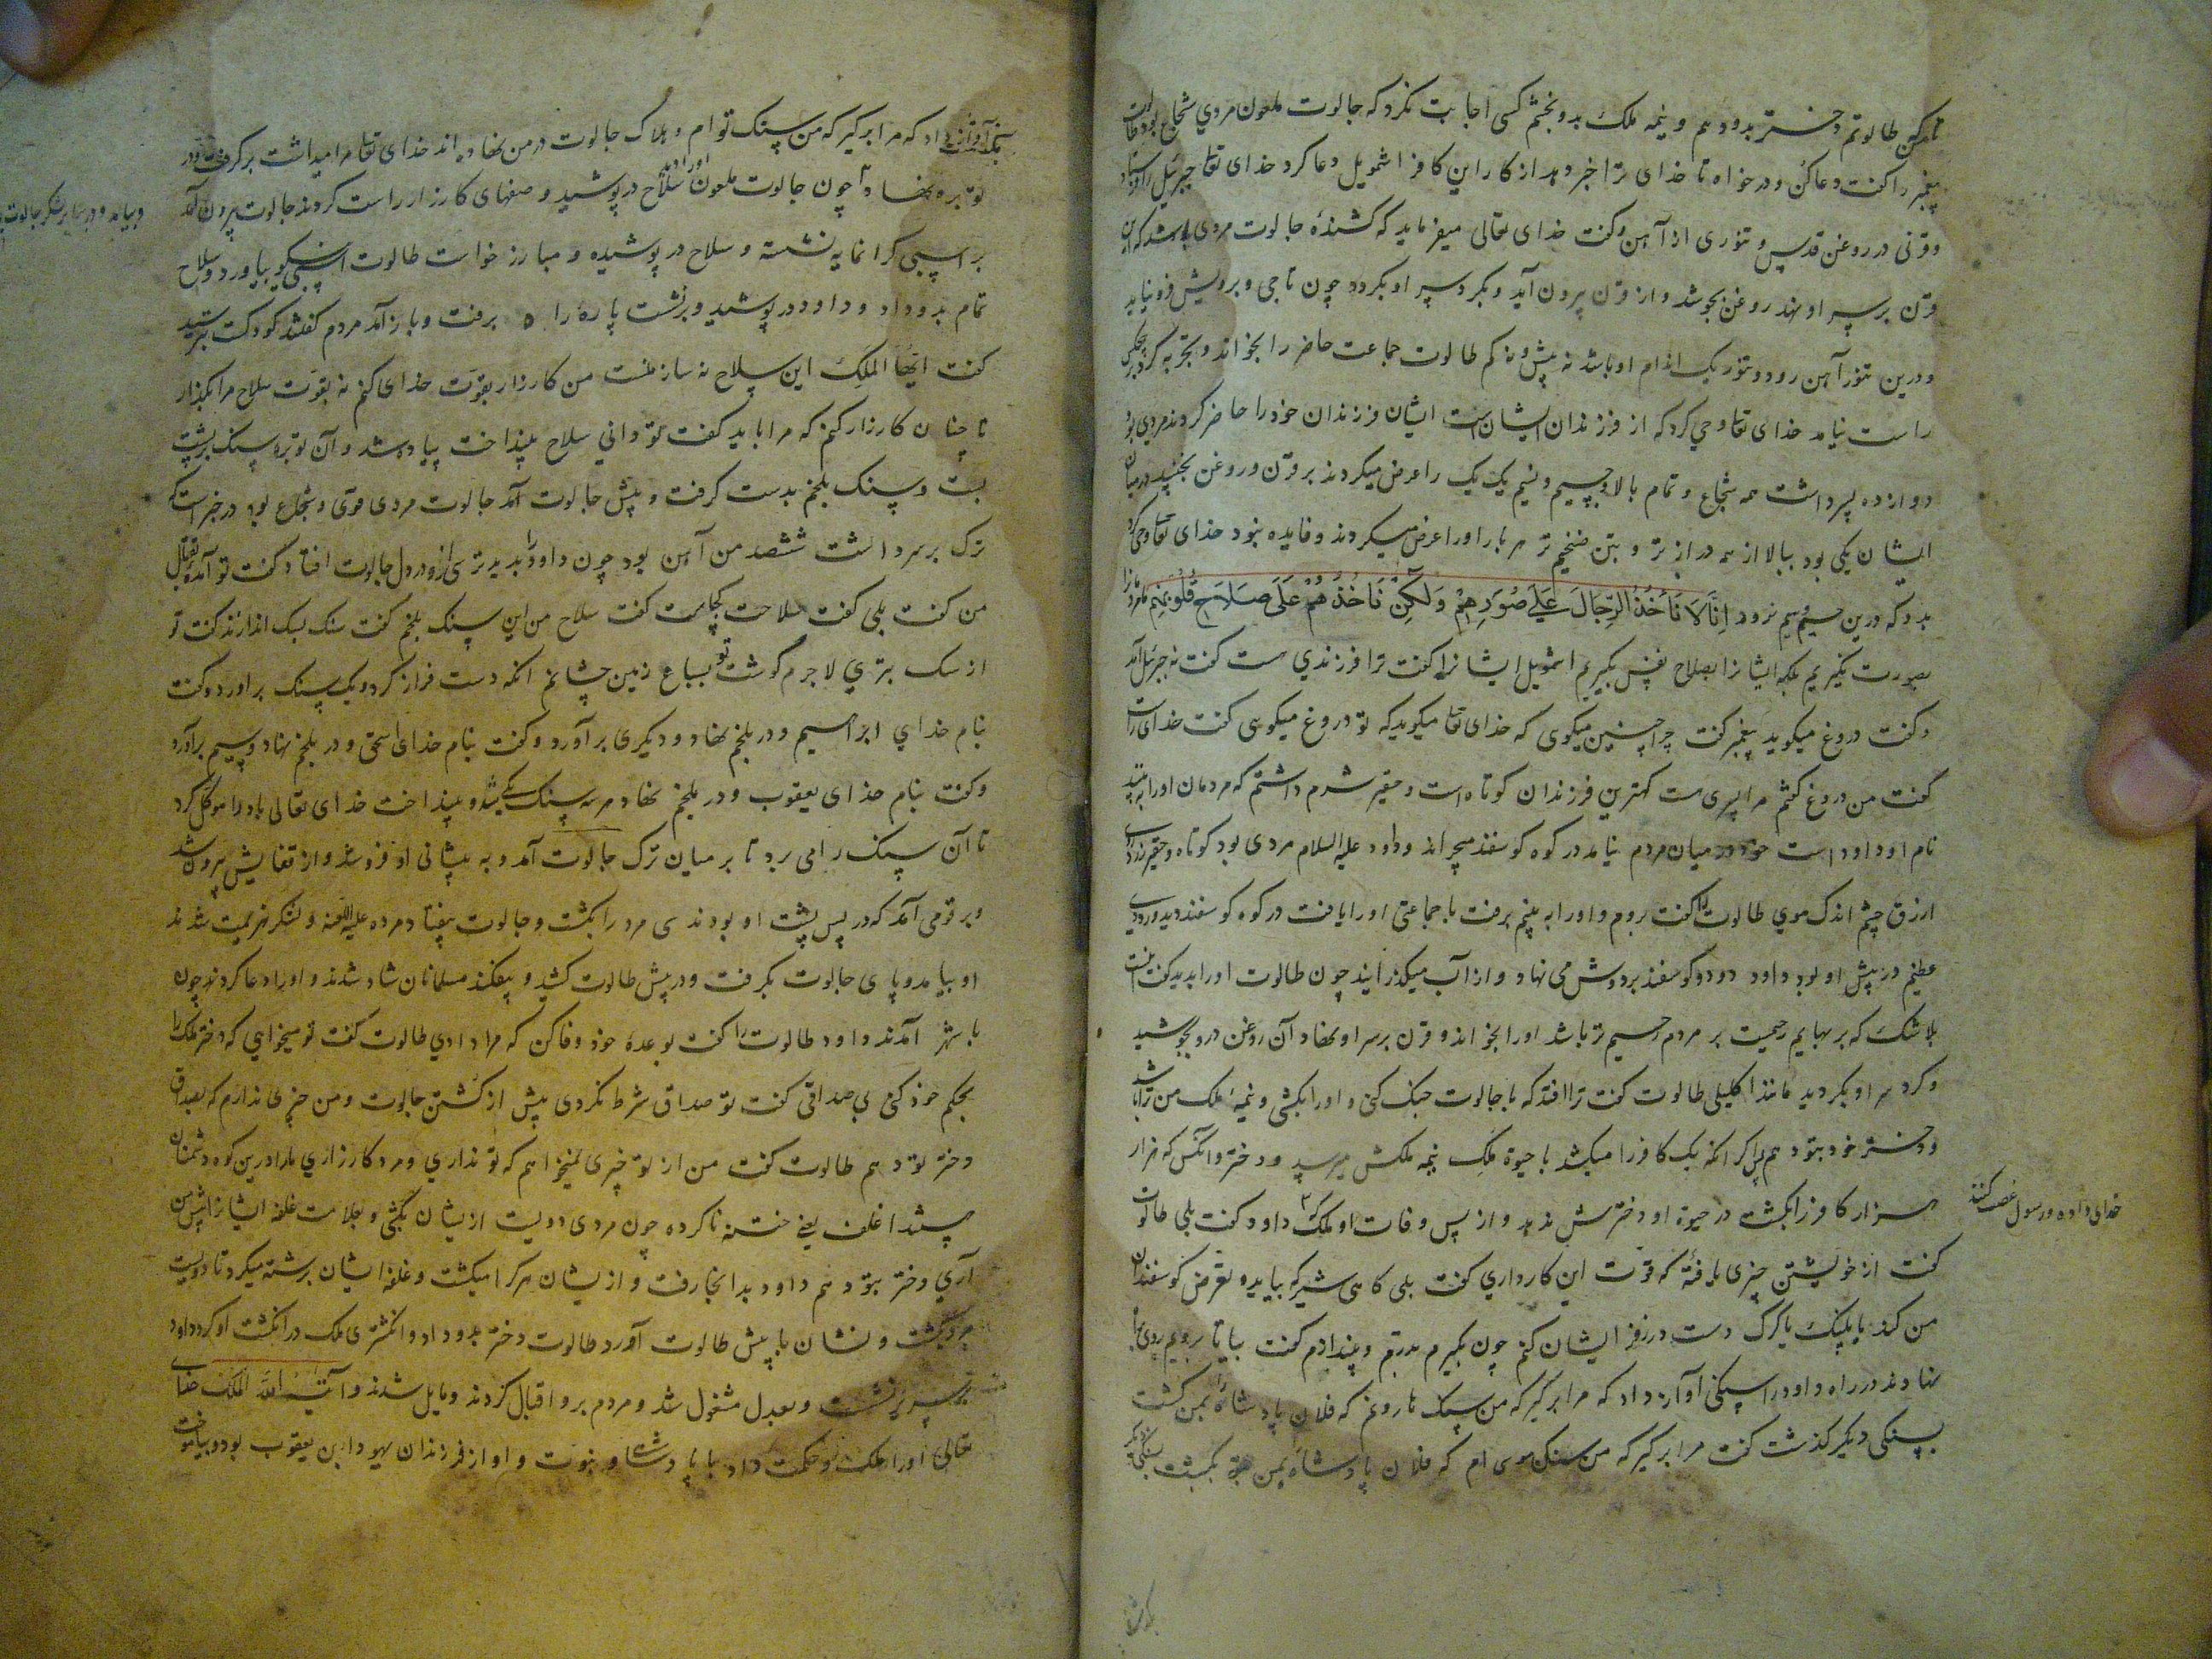 تا من که طالوتم دختر بدو دهم و نیمه ملک بدو بخشم کسی اجابت نکرد که جالوت ملعون مردي شجاع بود طالوت
پیغمبر را کفت دعا کن و درخواه تا خدای ترا خبر دهد از کار این کافر اشمویل دعا کرد خدای تعا جبرئیل را
و قرنی در روغن قدس و تنوری از آهن و کفت خدای تعالی میفرماید که کشندهٔ جالوت مردی باشد که این
قرن بر سر او نهند روغن بجوشد و از قرن بیرون آید و بکرد سر او بکردد چون تاجی و برویش فرو نیاید
و درین تنور آهن رود و تنور یک اندام او باشد نه بیش و نه کم طالوت جماعت حاضر را بخواند و تجربه کرد بر هیچکس
راست نیامد خدای تعا وحي کرد که از فرزندان ایشان است ایشان فرزندان خود را حاضر کردند مردی بود
دوازده پسر داشت همه شجاع و تمام بالا و جسیم و نسیم یک یک را عرض میکردند بر قرن و روغن نجنبید در میان
ایشان یکی بود ببالا از همه درازتر و بتن ضخیم تر هر بار او را عرض میکردند و فایده نبود خدای تعا وحی کرد
بدو که درین جسیم وسیم نرود اِنّا لَا نَأخُذُ الرِّجَالَ عَلَی صُوَرِهِمْ وَلٰکِنْ نَأخُذُهُمْ عَلَی صَلَاحِ قُلُوبِهِم ما مردمانرا
بصورت نکیریم بلکه ایشانرا بصلاح نفس بکیریم اشمویل ایشا را کفت ترا فرزندي هست کفت نه جبرئیل آمد
و کفت دروغ میکوید پیغمبر کفت چرا چنین میکوی که خدای تعا میکوید که تو دروغ میکویی کفت خدای راست
کفت من دروغ کفتم مرا پسری هست کهترین فرزندان کوتاه است و حقیر شرم داشتم که مردمان او را ببینند
نام او داود است خود در میان مردم نیامد در کوه کوسفند میچراند و داود علیه السلام مردی بود کوتاه و حقیر زرد روی
ازرق چشم اندک موي طالوت را کفت بروم و او را ببینم برفت با جماعتی او را یافت در کوه کوسفند دید و رودي
عظیم در پیش او بود داود دو دو کوسفند بر دوش می نهاد و از آب میکذرانید چون طالوت او را بدید کفت اینست
بلا شک که بر بهایم رحمیت بر مردم رحیم تر باشد او را بخواند و قرن بر سر او نهاد آن روغن درو بجوشید
و کرد سر او بکردید مانند اکلیلی طالوت کفت ترا افتد که با جالوت جنک کنی و او را بکشی و نیمهٔ ملک من ترا باشد
و دختر خود بتو دهم هر آنکه یک کافر را میکشد با حیوة ملک نیمه ملکش میرسد و دختر و آنکس که هزار
هزار کافر را بکشد در حیوة او دخترش ندهد و از پس وفات او ملک داود کفت بلی طالوت
کفت از خویشتن چیزی یافتهٔ که قوّت این کار داري کفت بلی کاهی شیر که بیاید و تعرض کوسفندان
من کند یا پلنک یا کرک دست در زفر ایشان کنم چون بکیرم بدرم و بیندازم کفت بیا تا برویم روی براه
نهادند در راه داود را سنکی آواز داد که مرا برکیر که من سنک هارونم که فلان پادشاه را بمن کشت
بسنکی دیکر کذشت کفت مرا برکیر که من سنک موسی ام که فلان پادشاه بمن بکشت بسنکی دیکر
خدای داده و رسول غصب کنند
بکذشت آواز داد که مرا برکیر که من سنک توام و هلاک جالوت در من نهاده اند خدای تعا مرا میداشت برکرفت و در
توبره نهاد چون جالوت ملعون سلاح در پوشید و صفهای کارزار راست کردند جالوت بیرون آمد
و بیامد و در برابر لشکر جالوت
بر اسپی کرانمایه نشسته و سلاح در پوشیده و مبارز خواست طالوت اسپی نیکو بیاورد و سلاح
تمام بدو داد و داود در پوشید و برنشست پارهٔ راه برفت و باز آمد مردم کفتند کودکست بترسید
کفت ایّها الملک این سلاح نه ساز منست من کارزار بقوّت خدای کنم نه بقوّت سلاح مرا بکذار
تا چنان کارزار کنم که مرا باید کفت تو دانی سلاح بینداخت پیاده شد و آن توبره سنک بر پشت
بست و سنک بلخم بدست کرفت و پیش جالوت آمد جالوت مردی قوی و شجاع بود در خبر است که
ترک بر سر داشت ششصد من آهن بود چون داود را بدید ترسی ازو در دل جالوت افتاد کفت تو آمدهٔ بقتال
من کفت بلی کفت سلاحت کجاست کفت سلاح من این سنک بلخم کفت سنک بسک اندازند کفت تو
از سک بتري لاجرم کوشت تو بسباع زمین چشانم انکه دست فراز کرد و یک سنک برآورد و کفت
بنام خداي ابراهیم و در بلخم نهاد و دیکری برآورد و کفت بنام خدای اسحق و در بلخم نهاد و سیم برآورد
و کفت بنام خدای یعقوب و در بلخم نهاد هر سه سنک یکی شد و بینداخت خدای تعالی باد را موکل کرد
تا آن سنک را می برد تا بر میان ترک جالوت آمد و به پیشانی او فرو شد و از قفایش بیرون شد
و بر قومی آمد که در پس پشت او بودند سی مرد را بکشت و جالوت بیفتاد مرده علیه اللعنه و لشکر هزیمت شدند
او بیامد و پای جالوت بکرفت و در پیش طالوت کشید و بیفکند مسلمانان شاد شدند و او را دعا کردند چون
با شهر آمدند داود طالوت را کفت بوعدهٔ خود وفا کن که مرا دادي طالوت کفت تو میخواهي که دختر ملک را
بحکم خود کنی بي صداقی کفت تو صداق شرط نکردی پیش از کشتن جالوت و من چیزی ندارم که بصداق
دختر تو دهم طالوت کفت من از تو چیزی نمیخواهم که تو نداري و مرد کارزاري ما را درین کوه دشمنان
هستند اغلف یعنی ختنه ناکرده چون مردی دویست ازیشان بکشی و بعلامت غلفه ایشانرا پیش من
آري دختر بتو دهم داود بدانجا رفت و ازیشان هرکرا میکشت و غلفه ایشان برشته میکرد تا دویست
مرد بکشت و نشان با پیش طالوت آورد طالوت دختر بدو داد و انکشتری ملک در انکشت او کرد داود
بر سریر نشست و بعدل مشغول شد و مردم برو اقبال کردند و مایل شدند و آتیٰهُ اللّٰهُ الملک خدای
تعالی او را ملک و حکمت داد با پادشاهی و نبوّت و او از فرزندان یهودا بن یعقوب بود و بیاموخت